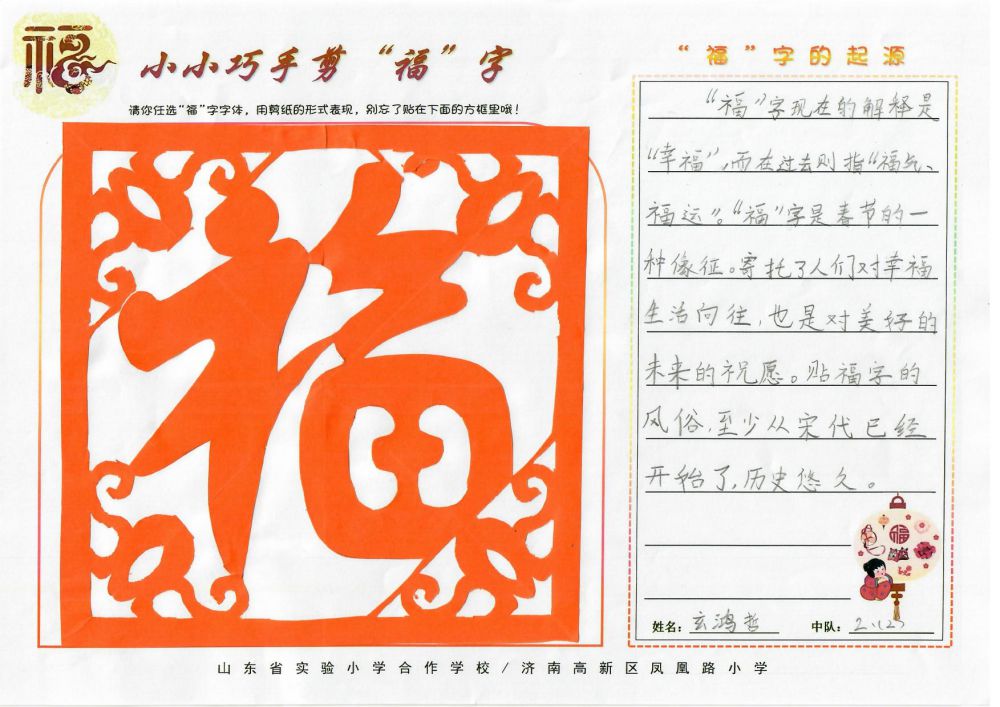 福
小小巧手剪“福”字
请你任选“福”字字体，用剪纸的形式表现，别忘了贴在下面的方框里哦！
福
“福”字的起源
“福”字现在的解释是
“幸福”，而在过去则指“福气、
福运”。“福”字是春节的一
种像征。寄托了人们对幸福
生活向往，也是对美好的
未来的祝愿。贴福字的
风俗，至少从宋代已经
开始了，历史悠久。
福
姓名：玄鸿哲 中队：2.(2)
山东省实验小学合作学校/济南高新区凤凰路小学